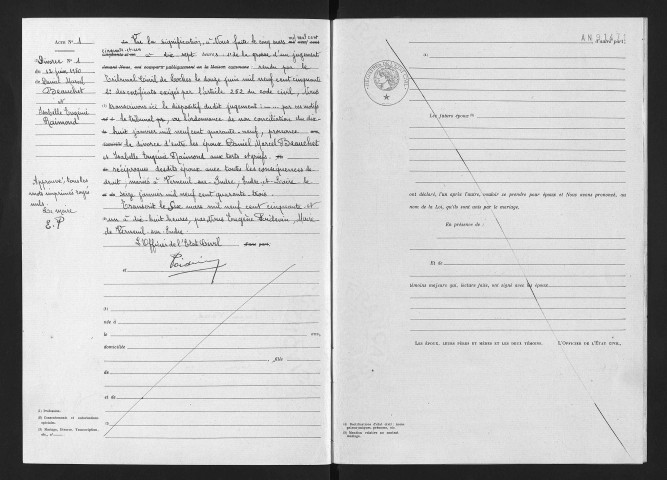 Acte N° 1
Divorce N° 1
du 12 juin 1950
Daniel Marcel
Beauchet
et
Isabelle Eugénie
Raimond
Approuvé: tous les
mots imprimés rayés
nuls.
Le Maire
E. P
Vu la signification, à Nous faite le cinq mars mil neuf cent
cinquante et un à dix sept heures de la grosse d'un jugement
rendu par le
Tribunal Civil de Loches le douze juin mil neuf cent cinquante
des certificats exigés par l'article 252 du code civil, Nous
transcrivons ici le dispositif dudit jugement: par ces motifs
le tribunal vu l'ordonnance de non conciliation du dix
huit janvier mil neuf cent quarante-neuf, prononce
le divorce d'entre les époux Daniel Marcel Beauchet
et Isabelle Eugénie Raimond aux torts et griefs
réciproques desdits époux avec toutes les conséquences de
droit, mariés à Verneuil-sur-Indre, Indre-et-Loire le
seize janvier mil neuf cent quarante-trois.
Transcrit le six mars mil neuf cent cinquante et
un à dix-huit heures, par Nous Eugène Maire
de Verneuil-sur-Indre
L'Officier de l'Etat Civil
d'une part;
et
(1)
née à
le
domiciliée
, fille
de
et de
(1) Profession.
(2) Consentements et autorisations
spéciales.
(3) Mariage, Divorce, Transcription,
etc., et
d'autre part;
(4)
Les futurs époux
ont déclaré, l'un après l'autre, vouloir se prendre pour époux et Nous avons prononcé, au
nom de la Loi, qu'ils sont unis par le mariage.
En présence de :
Et de
témoins majeurs qui, lecture faite, ont signé avec les époux
Les époux, leurs pères et mères et les deux témoins.
L'Officier de l'État Civil,